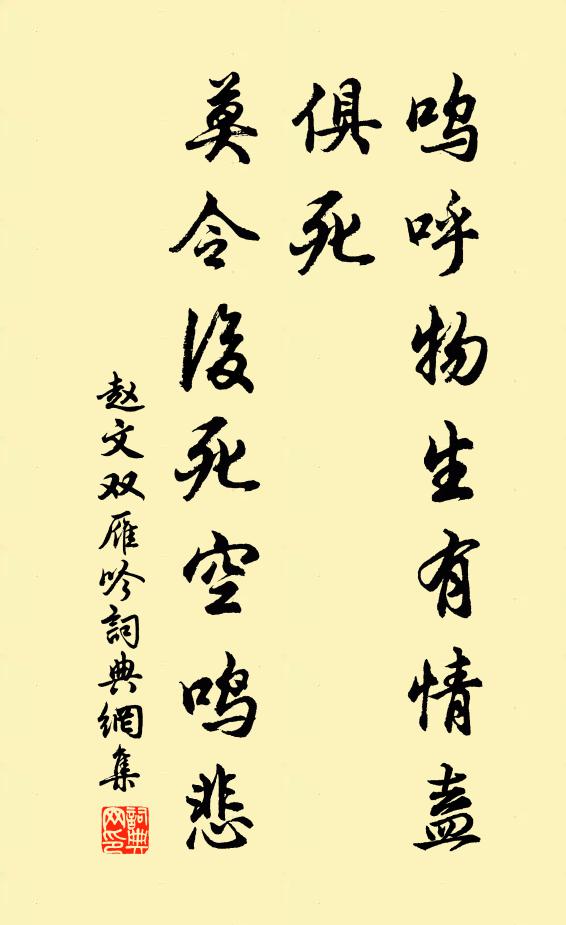 呜呼物生有情盍
俱死
莫令後死空鸣悲
赵文双雁吟詞典網集
詞典
网印